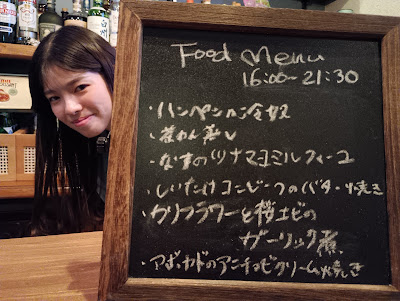 Food Menu
16:00~21:30
・ハンペンの冷奴
・茶わん蒸し
・なすのツナマヨミルフィーユ
・しいたけコンビーフのバター焼き
・カリフラワーと桜エビの
ガーリック煮
・アボカドのアンチョビクリーム焼き